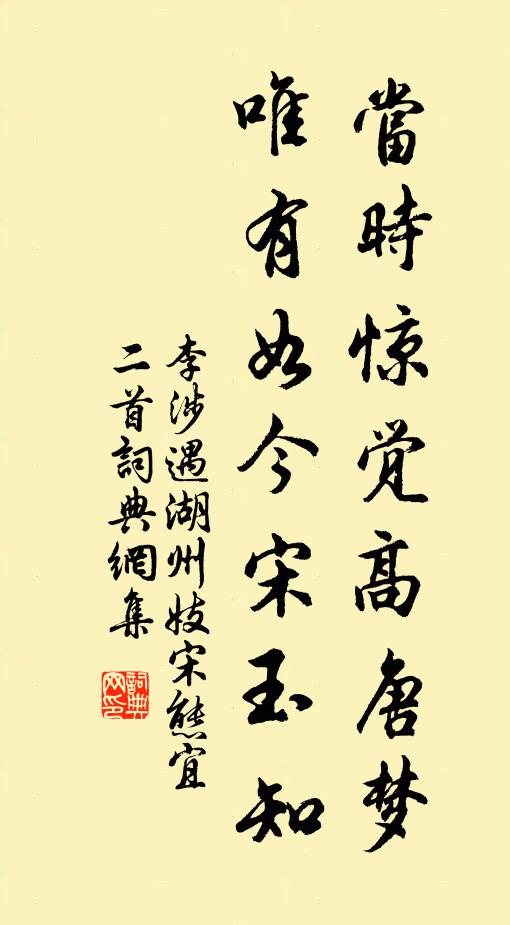 當時惊觉高唐梦
唯有如今宋玉知
李涉遇湖州妓宋態宜
二首詞典網集
詞典
网印